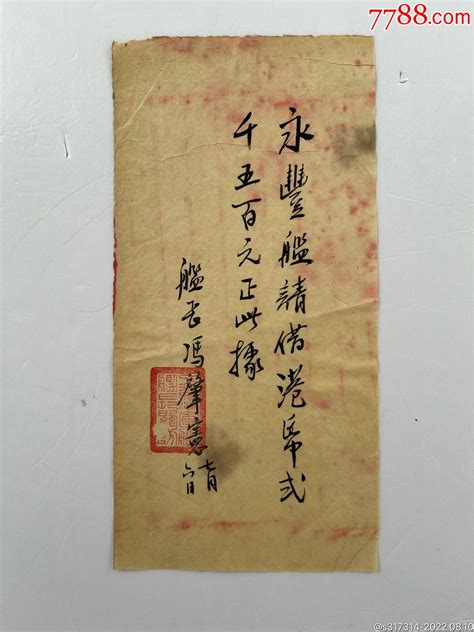 永豐艦請借港幣弍
千五百元正此據
艦長馮肇憲
七月
六日
7788.com
@s317314-2022.08.10